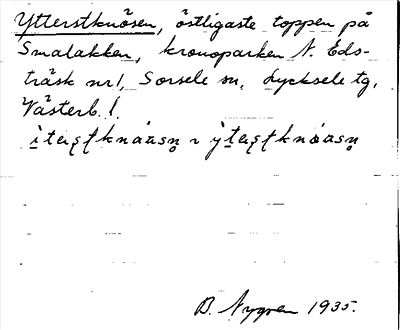 Ytterstknösen, östligaste toppen på
Smalakken, kronoparken N. Eds-
träsk nr 1, Sorsele sn, Lycksele tg,
Västerb. l.
B. Nygren 1935.